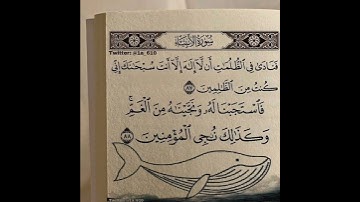 سُورَةُ الأَنبِيَاء
Twitter: @1a_61б
فَنَادَىٰ فِي ٱلظُّلُمَٰتِ أَن لَّآ إِلَٰهَ إِلَّآ أَنتَ سُبْحَٰنَكَ إِنِّي
كُنتُ مِنَ ٱلظَّٰلِمِينَ ٨٧
فَٱسْتَجَبْنَا لَهُۥ وَنَجَّيْنَٰهُ مِنَ ٱلْغَمِّ ۚ
وَكَذَٰلِكَ نُۨجِي ٱلْمُؤْمِنِينَ ٨٨